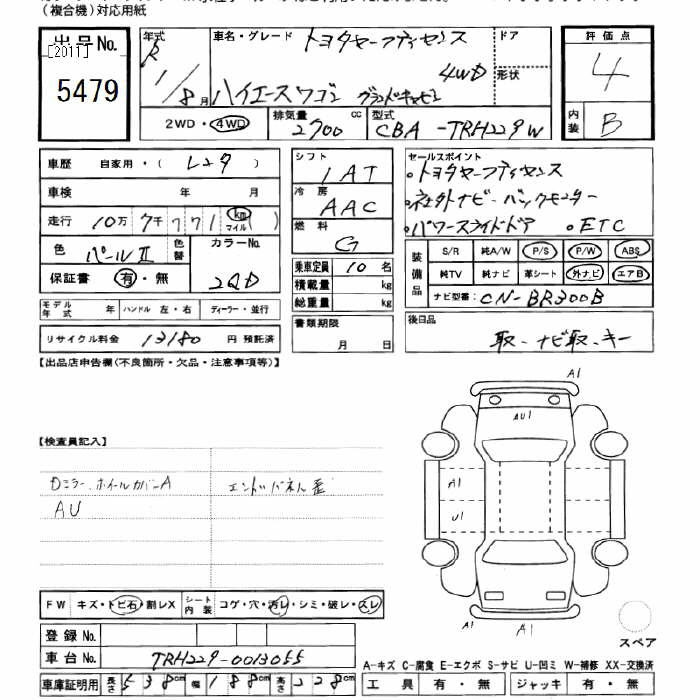 (複合機)対応用紙
出品No.
[2011]
5479
年式
R
1/8月
車名・グレード
トヨタセーフティセンス
4WD
ハイエースワゴン グランドキャビン
ドア
形状
評価点
4
内装
B
2WD・4WD
排気量 2700 cc
型式 CBA-TRH229W
車歴 自家用・(レンタ)
車検 年 月
走行 10万7千771 km マイル( )
色 パールⅡ
色替
カラーNo.
2QD
保証書 有・無
シフト
IAT
冷房
AAC
燃料
G
乗車定員 10名
積載量 kg
総重量 kg
セールスポイント
・トヨタセーフティセンス
・社外ナビ・バックモニター
・パワースライドドア ・ETC
装備品
S/R 純A/W P/S P/W ABS
純TV 純ナビ 革シート 外ナビ エアB
ナビ型番 CN-BR300B
モデル年式 年 ハンドル 左・右 ディーラー・並行
リサイクル料金 13180 円 預託済
書類期限
月 日
後日品
取、ナビ取、キー
【出品店申告欄(不良箇所・欠品・注意事項等)】
【検査員記入】
Dミラー、ホイルカバーA
エンドパネル歪
AU
A1
AU1
A1
U1
A1
A1
スペア
FW キズ・トビ石・割レX
シート内装 コゲ・穴・汚レ・シミ・破レ・スレ
登録No.
車台No. TRH229-0013055
車庫証明用 長さ 538cm 幅 188cm 高さ 228cm
A-キズ C-腐食 E-エクボ S-サビ U-凹ミ W-補修 XX-交換済
工具 有・無 ジャッキ 有・無